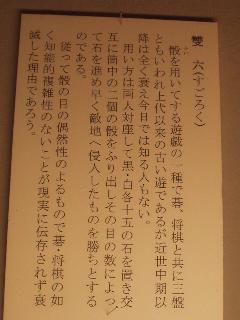 雙六(すごろく)
骰を用いてする遊戯の一種で碁、将棋と共に三盤
ともいわれ上代以来の古い遊であるが近世中期以
降は全く衰え今日では知る人もない。
用い方は両人対座して黒・白各十五の石を置き交
互に筒中の二個の骰をふり出しその目の数によっ
て石を進め早く敵地へ侵入したものを勝ちとする
のである。
従って骰の目の偶然性のよるもので碁・将棋の如
く知能的複雑性のないことが現実に伝存されず衰
滅した理由であろう。